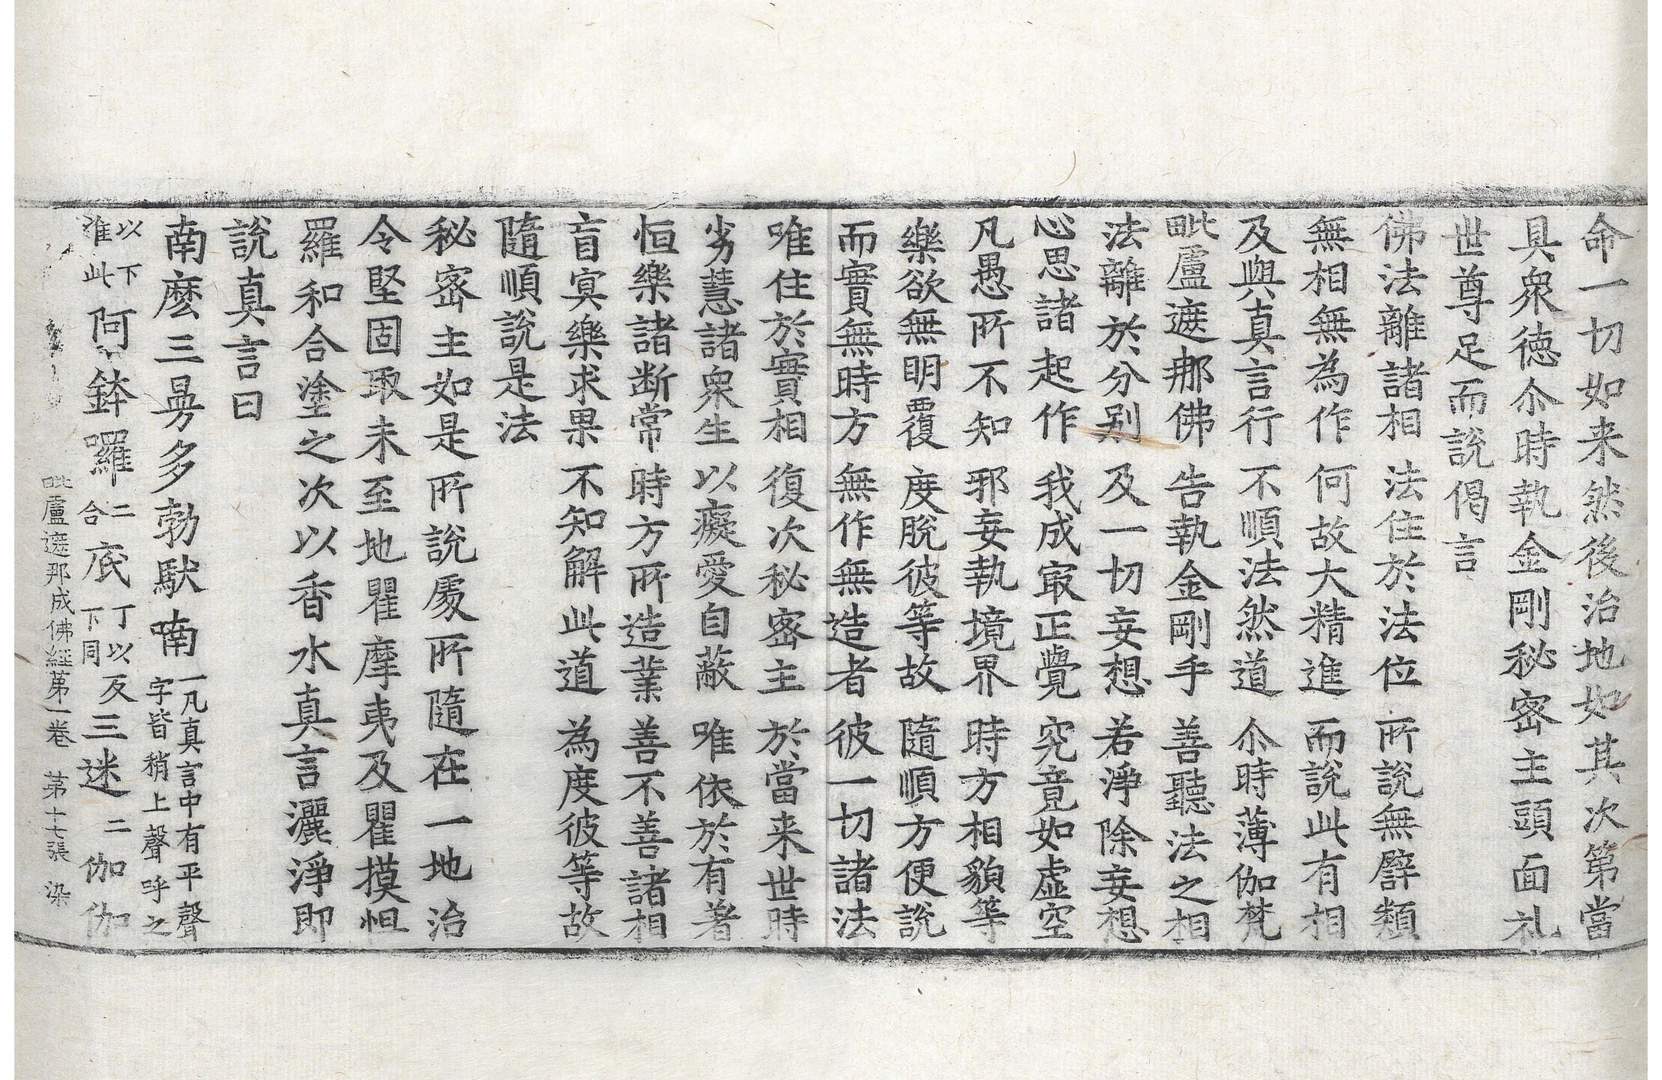 命一切如来然後治地如其次第當
具衆德尒時執金剛秘密主頭面礼
世尊足而說偈言
佛法離諸相　法住於法位　所說無譬類
無相無為作　何故大精進　而說此有相
及與真言行　不順法然道　尒時薄伽梵
毗盧遮那佛　告執金剛手　善聽法之相
法離於分别　及一切妄想　若淨除妄想
心思諸起作　我成㝡正覺　究竟如虛空
凡愚所不知　邪妄執境界　時方相貌等
樂欲無明覆　度脫彼等故　隨順方便說
而實無時方　無作無造者　彼一切諸法
唯住於實相　復次秘密主　於當来世時
劣慧諸衆生　以癡愛自蔽　唯依於有著
恒樂諸断常　時方所造業　善不善諸相
盲㝠樂求果　不知解此道　為度彼等故
隨順說是法
秘密主如是所說處所隨在一地治
令堅固取未至地瞿摩夷及瞿摸怛
羅和合塗之次以香水真言灑淨即
說真言曰
南麽三曼多勃馱喃一凡真言中有平聲字皆稍上聲呼之
以下准此阿鉢囉二合底丁以反下同三迷二伽伽
毗盧遮那成佛經第一卷　第十七張　染